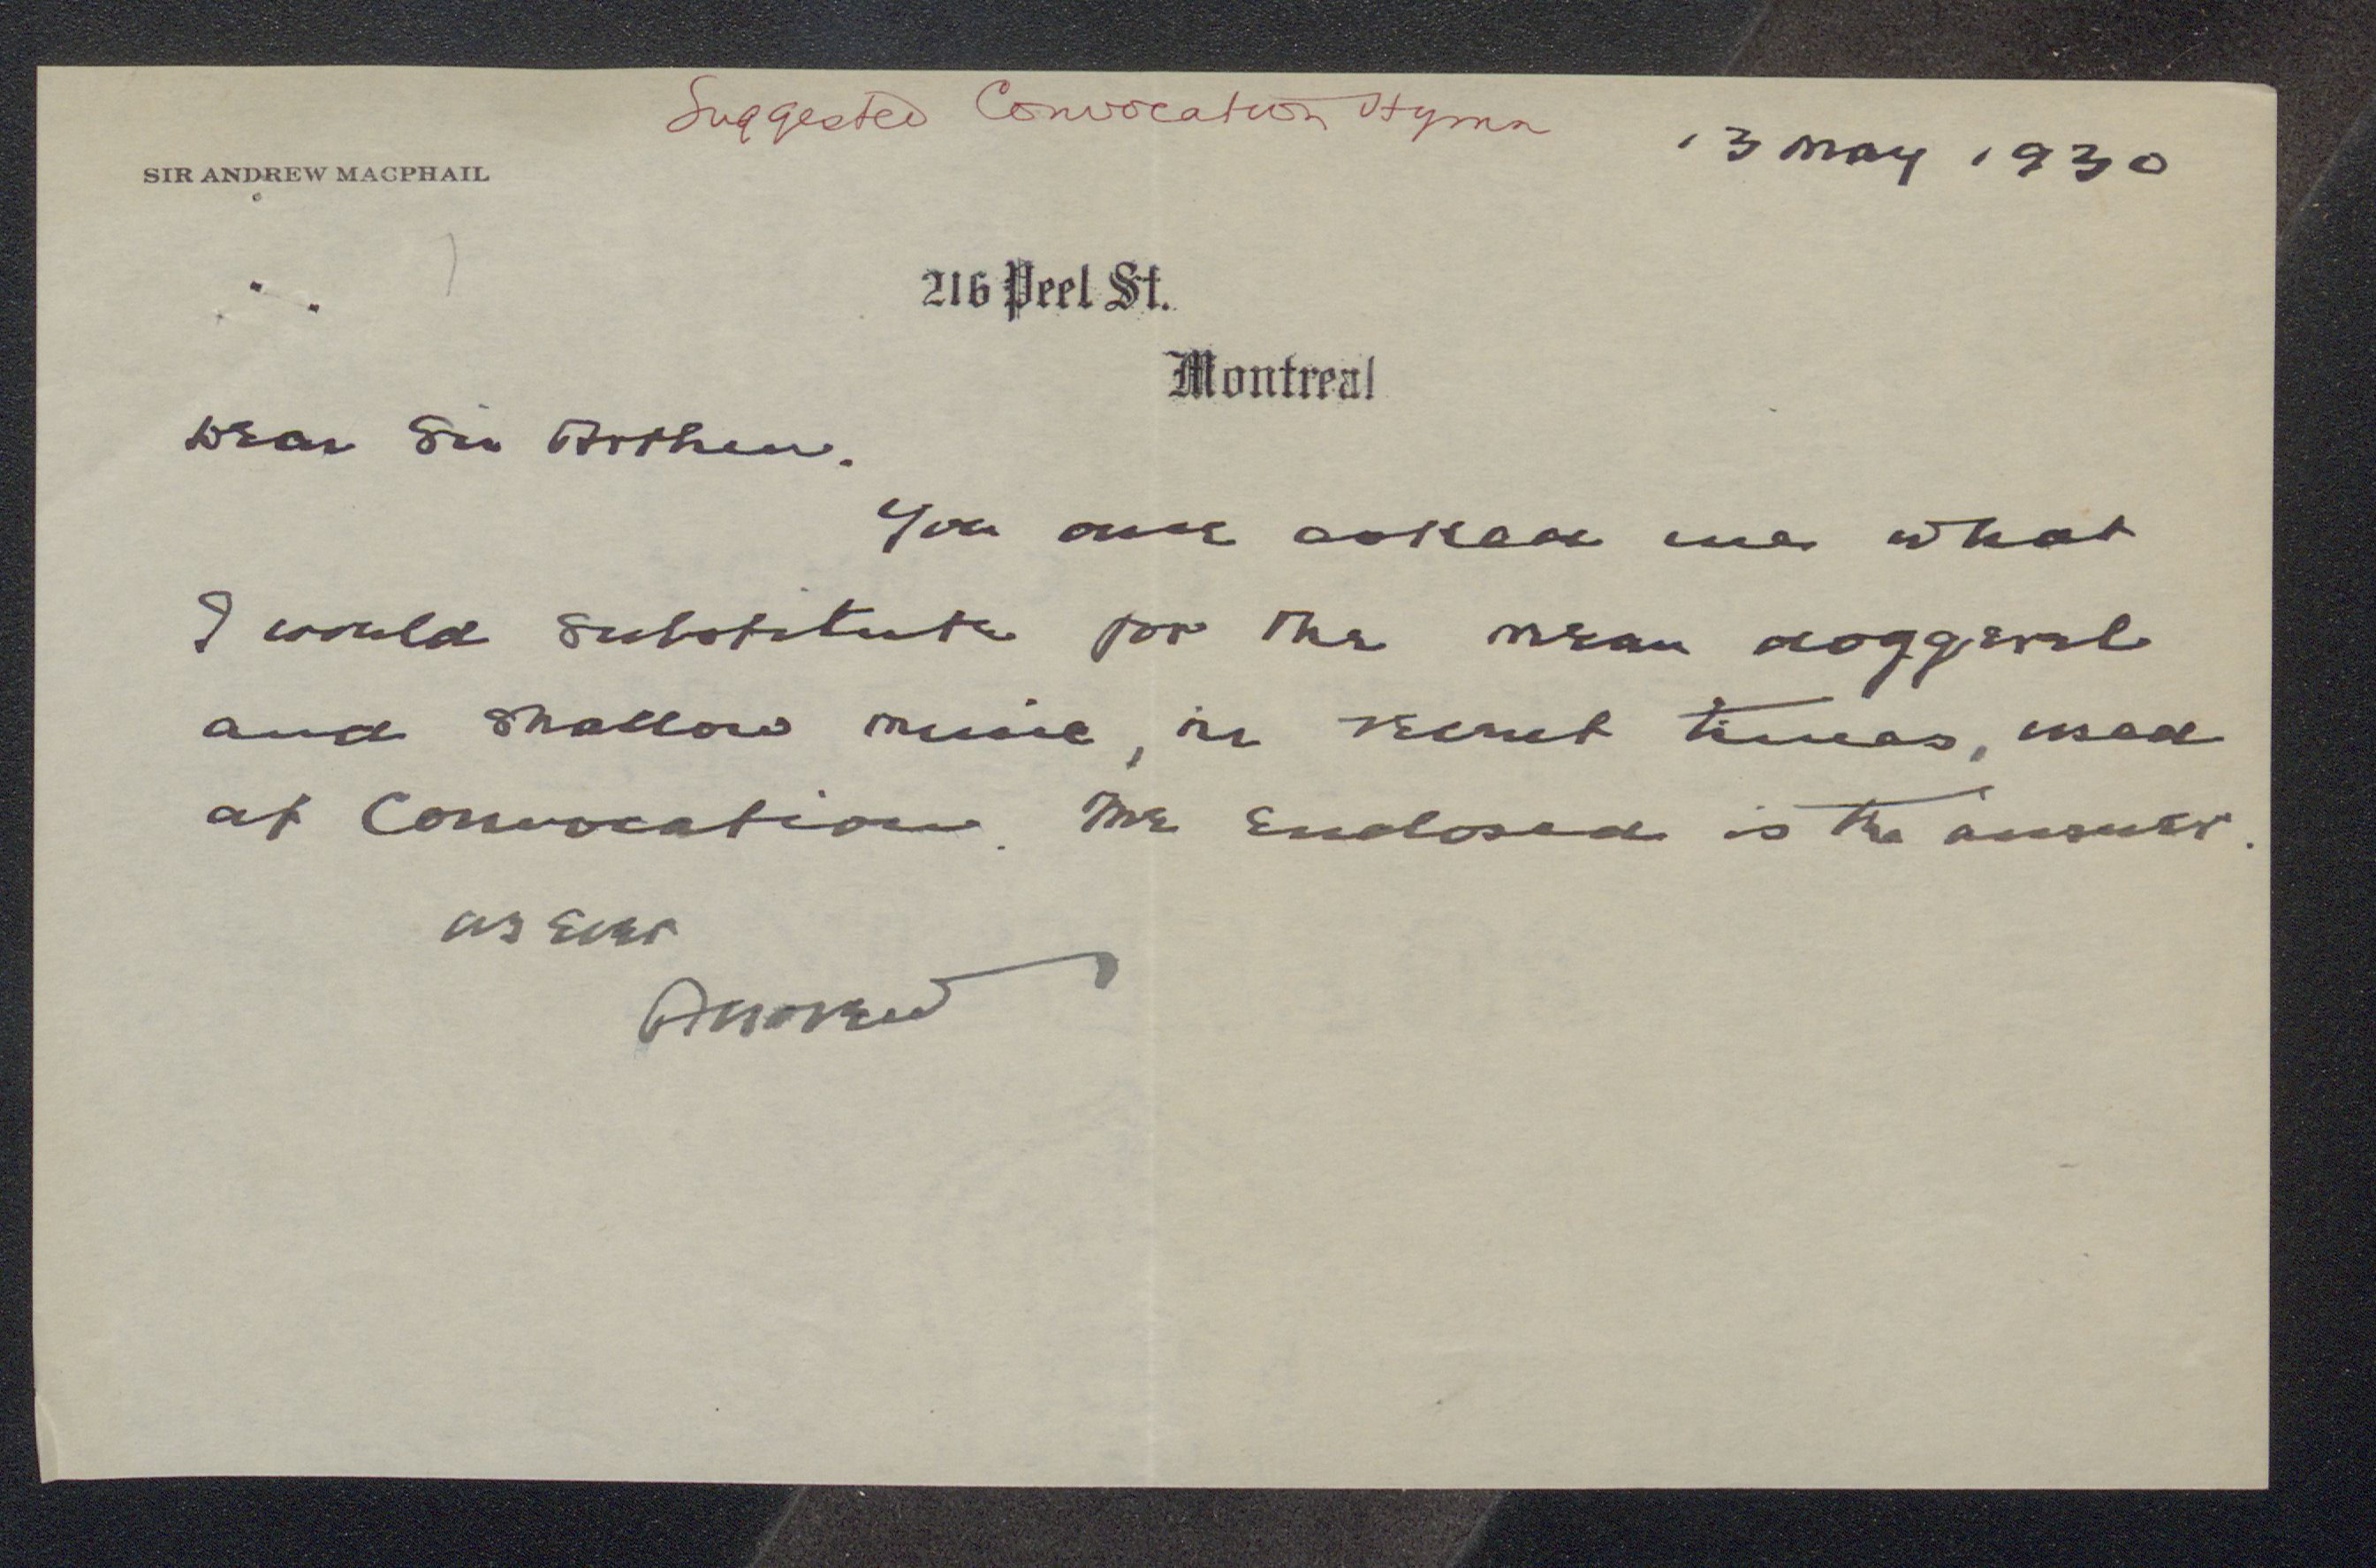 Suggested Convocation Hymn
13 May 1930
SIR ANDREW MACPHAIL
216 Peel St.
Montreal
Dear Sir Arthur.
You once asked me what
I would substitute for the mean doggerel
and shallow music, in recent times, used
at Convocation. The enclosed is the answer.
as ever
Andrew